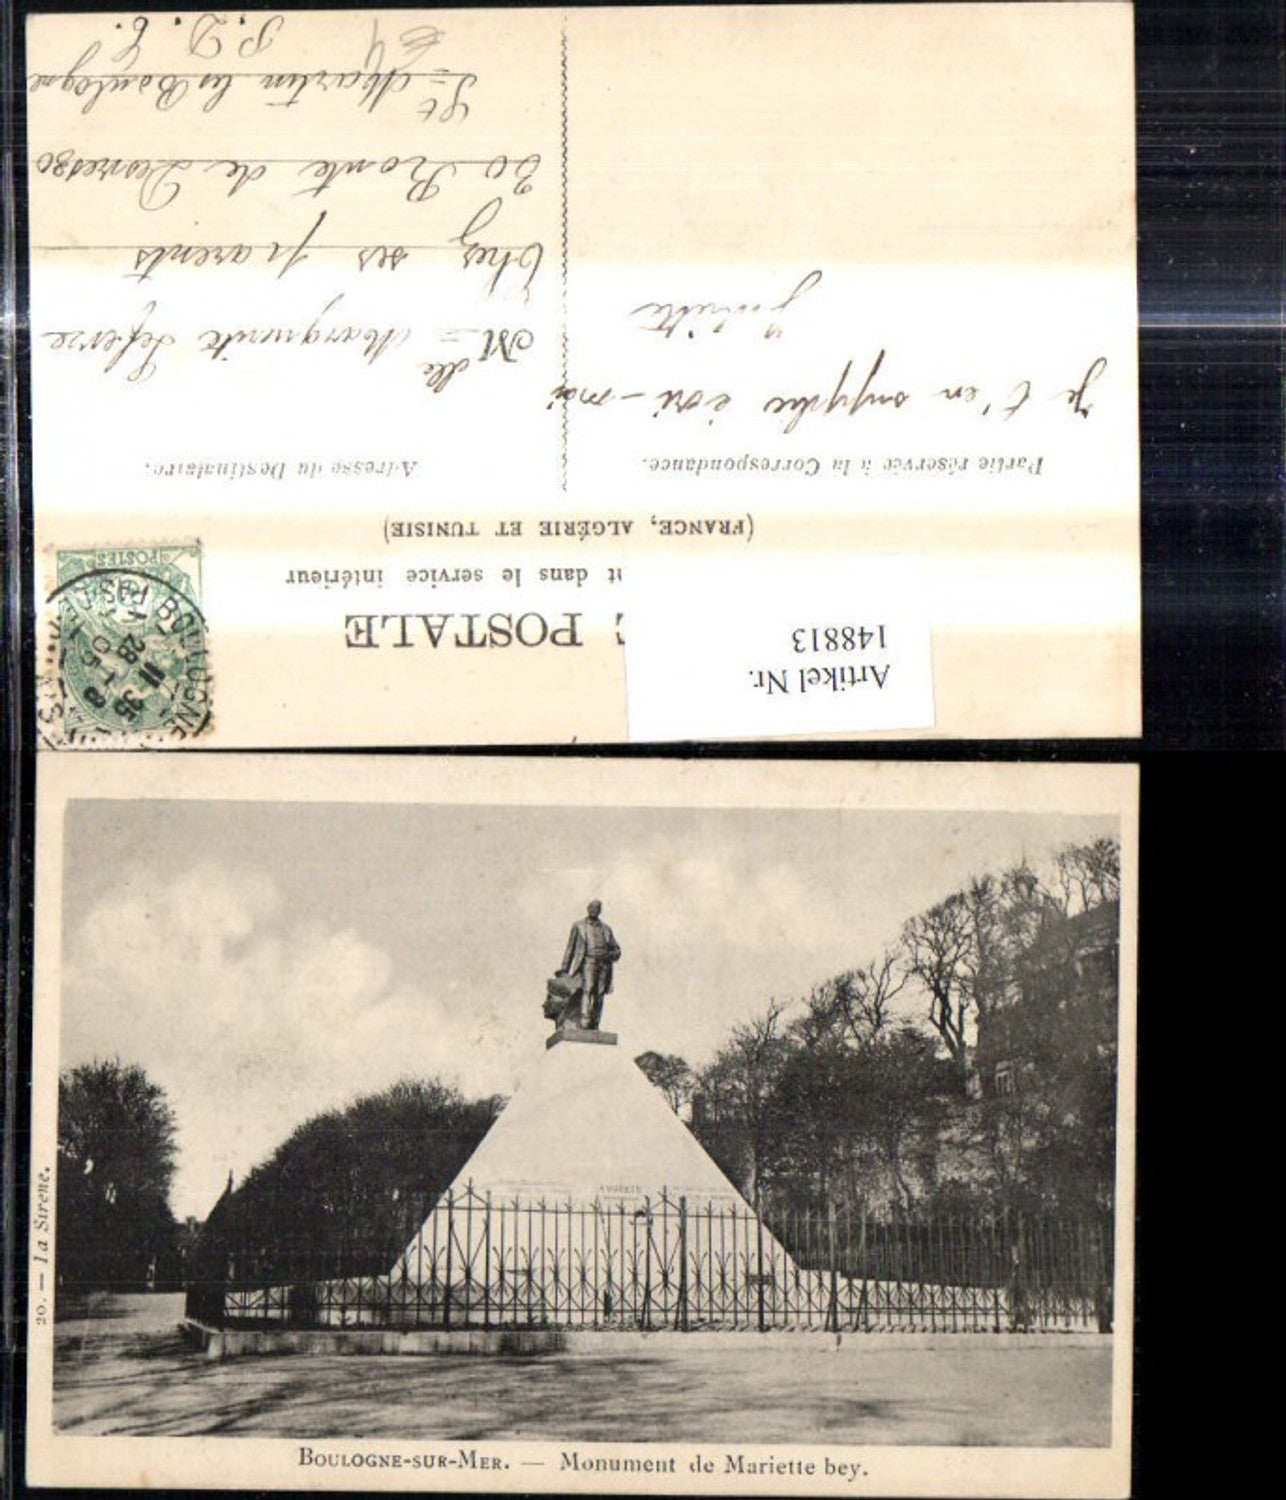 Artikel Nr.
148813
E POSTALE
t dans le service intérieur
(FRANCE, ALGÉRIE ET TUNISIE)
Partie réservée à la Correspondance.
Adresse du Destinataire.
Je t'en supplie écri-moi
M^elle Marguerite Lefevre
Chez ses parents
30 Route de Desvres 30
St Martin les Boulogne
P. D. C.
POSTES
BOULOGNE
20. — La Sirène.
BOULOGNE-SUR-MER. — Monument de Mariette bey.